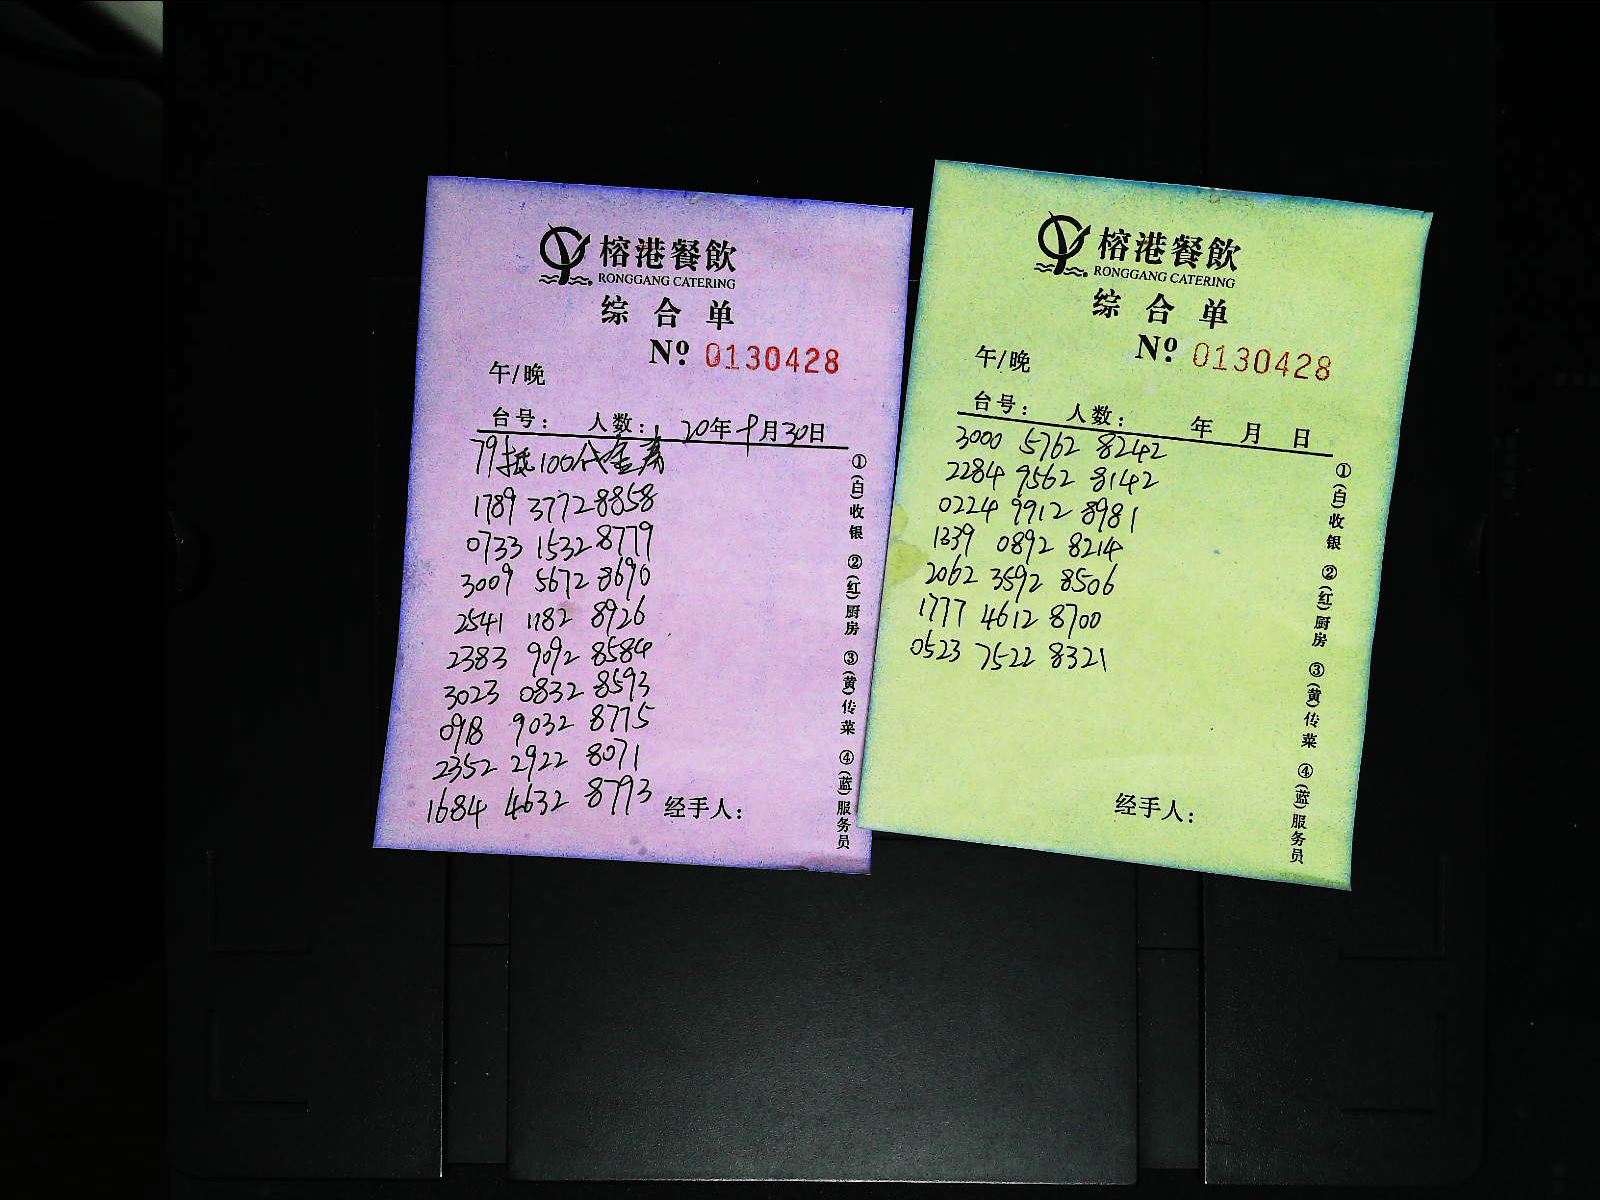 榕港餐飲
RONGGANG CATERING
综合单
Nº 0130428
午/晚
台号： 人数： 20年9月30日
79抵100代金券
1789 3772 8858
0733 1532 8779
3009 5672 8690
2541 1182 8926
2383 9092 8584
3023 0832 8593
0918 9032 8775
2352 2922 8071
1684 4632 8793
经手人：
①(白)收银 ②(红)厨房 ③(黄)传菜 ④(蓝)服务员
榕港餐飲
RONGGANG CATERING
综合单
Nº 0130428
午/晚
台号： 人数： 年 月 日
3000 5762 8242
2284 9562 8142
0224 9912 8981
1339 0892 8214
2062 3592 8506
1777 4612 8700
0523 7522 8321
经手人：
①(白)收银 ②(红)厨房 ③(黄)传菜 ④(蓝)服务员